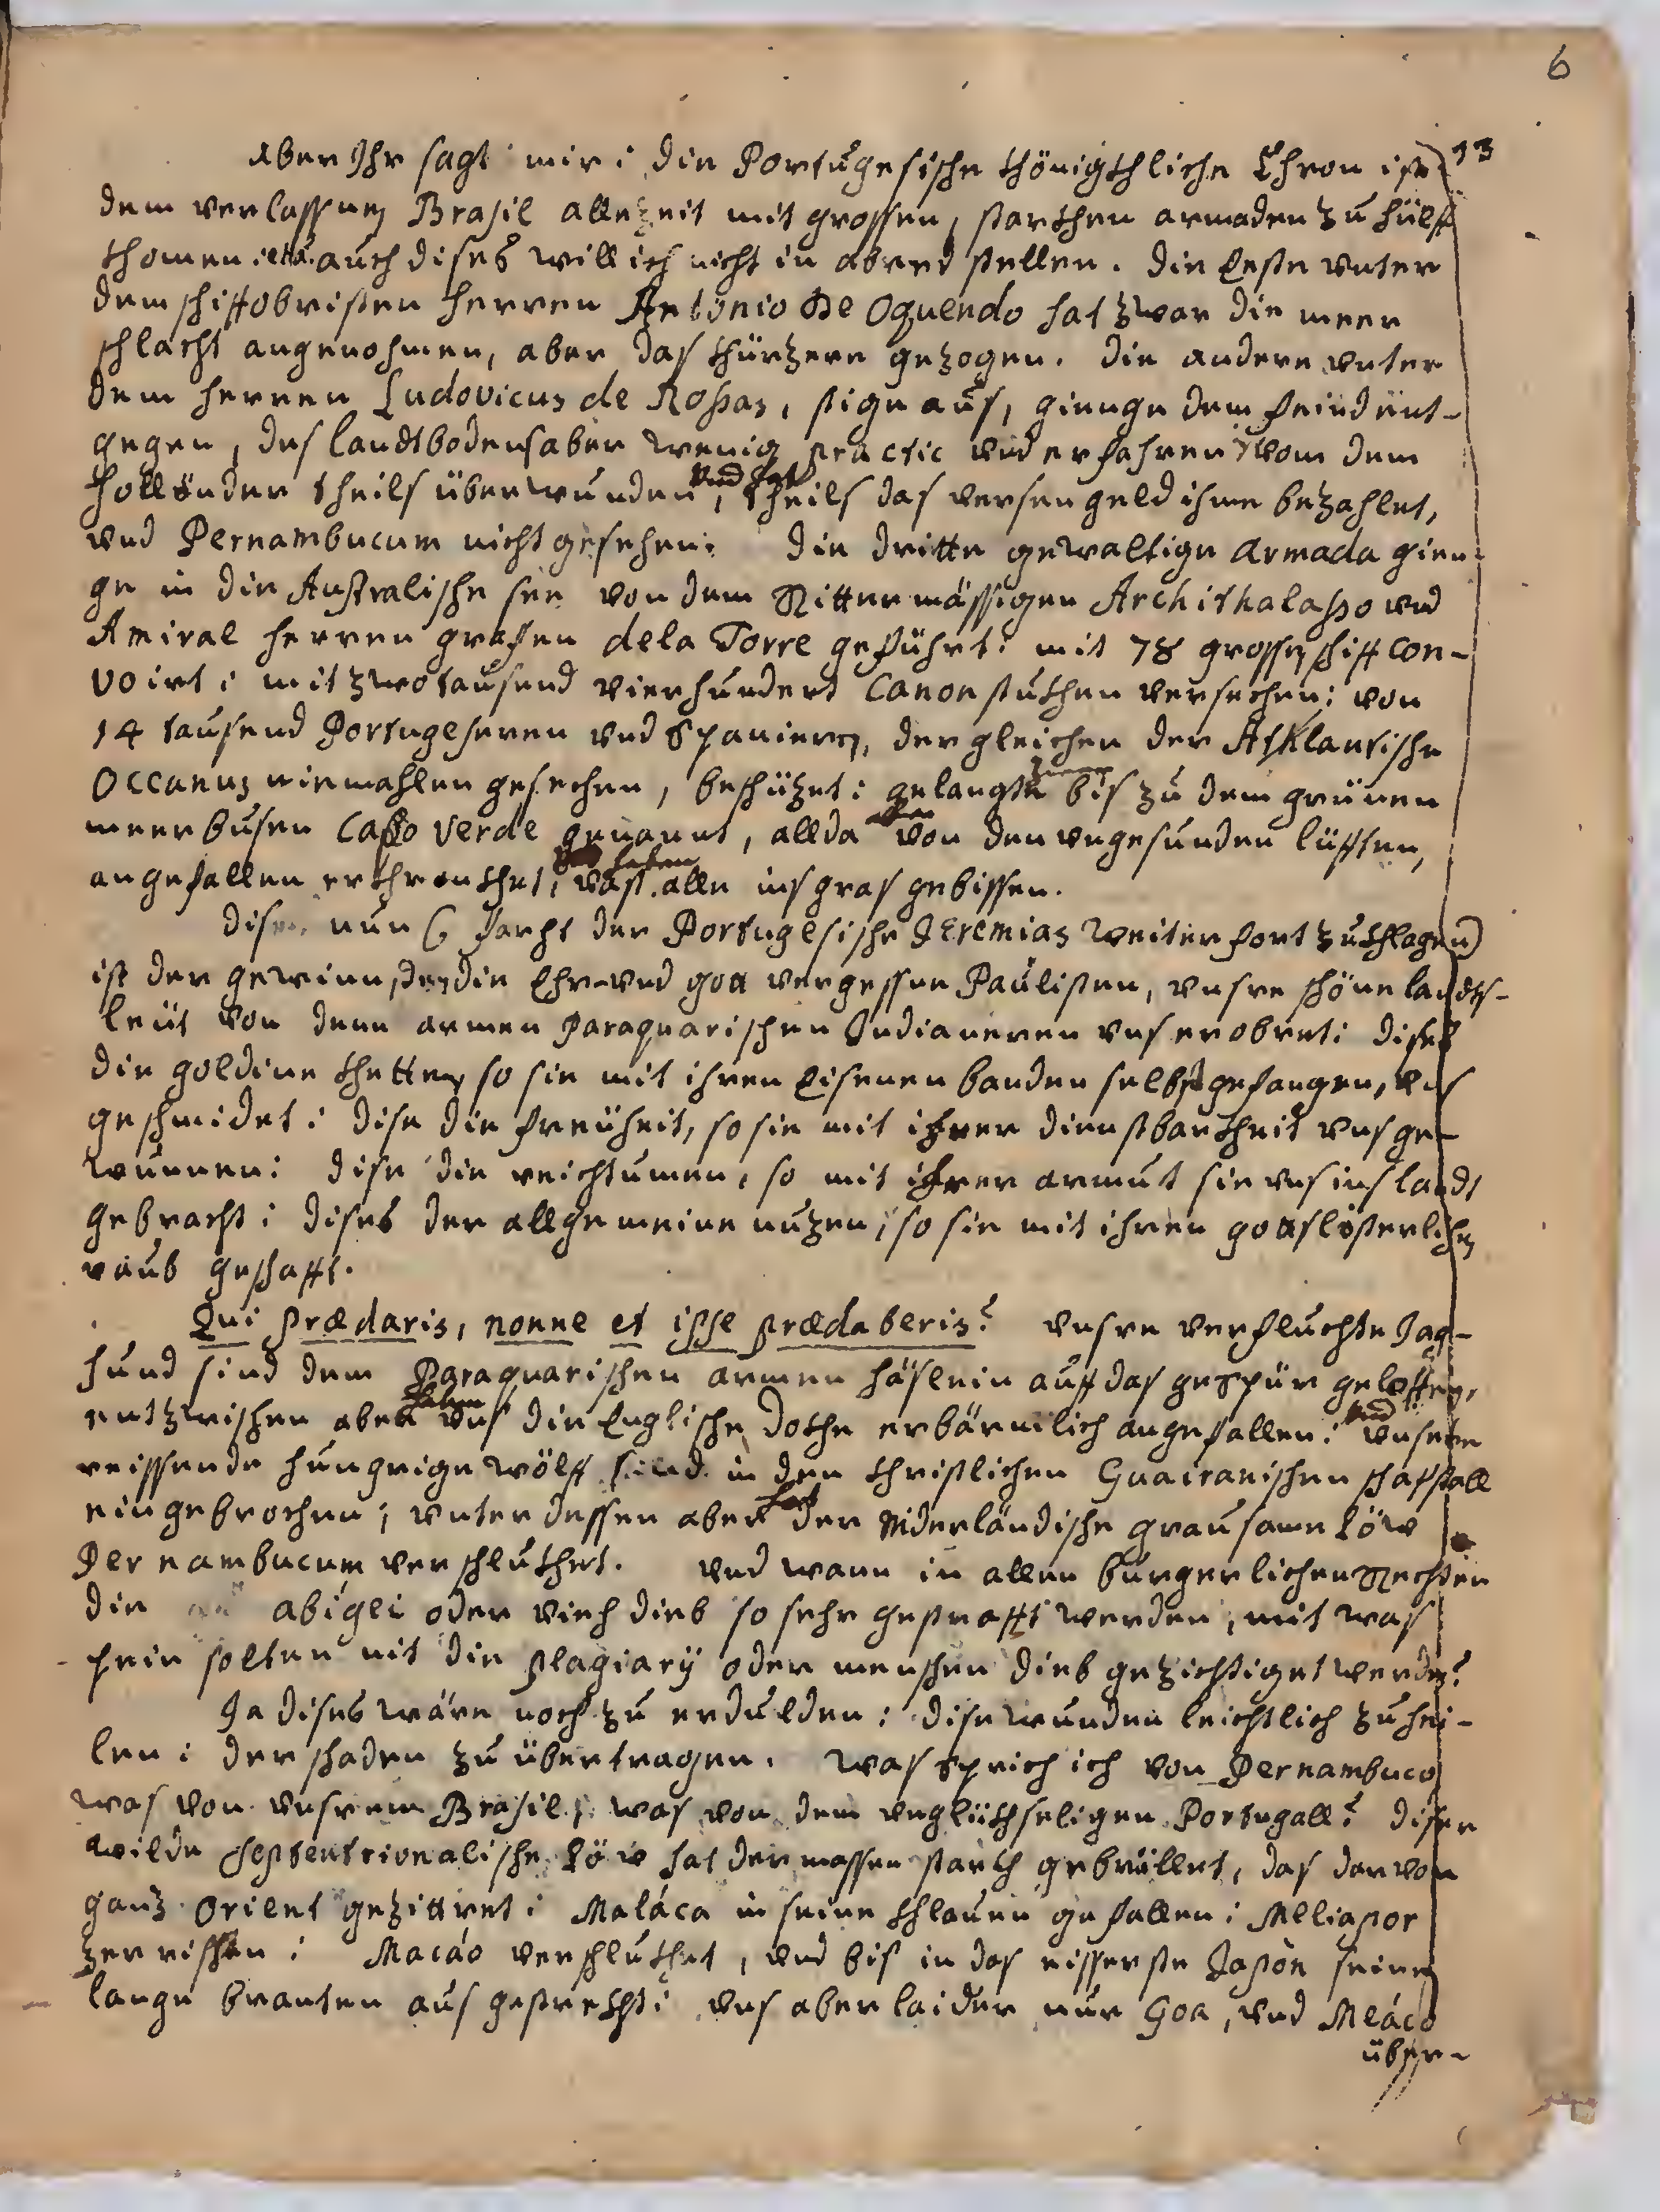 6
aber Ihr sagt mir: die Portugesische khönigkhliche Chron ist 13
dem verlassnen Brasil allezeit mit grossen, starkhen armaden zu hülff
khomen: auch dises will ich nicht in abred stellen. die Erste vnter
dem schiffobristen herren Antonio De Oquendo hat zwar die meer
schlacht angenohmen, aber das khürzere gezogen. die andere vnter
dem herren Ludovicus de Rossas, stige aus, gienge dem feind ent-
gegen, des landtbodens aber wenig practic vnd erfahren, vom dem
Holländer theils überwunden, vnd hat theils das versengeld ihme bezahlet,
vnd Pernambucum nicht gesehen: die dritte gewaltige Armada gien-
ge in die Australische see von dem Rittermässigen Archithalasso vnd
Amiral herren grafen dela Torre geführt: mit 78 grossen schiff con-
voirt: mit zwotausend vierhundert Canon stukhen versechen: von
14 tausend Portugeseren vnd Spaniern, der gleichen der Atklantische
Occanus niemahlen gesechen, beschüzet: gelangte bis zu dem grünen
meerbusen Capo Verde genannt, allda aber von den vngesunden lüfften,
angefallen erkhrankhet, haben vast alle ins gras gebissen.
diser nun (: facht der Portugesische Jeremias weiter fort zukhlagen)
ist der gewinn, den die Ehr- vnd gott vergessne Paulisten, vnsre schöne landts-
leüt von denn armen Paraquarischen Indianeren vns erobret: dises
die goldine khetten, so sie mit ihren Eisenen banden selbst gefangen, vns
geschmidet: dise die freüheit, so sie mit ihrer dienstbarkheit vns ge-
wunnen: dise die reichtumen, so mit ihrer armut sie vns ins landt
gebracht: dises der allgemeine nuzen, so sie mit ihren gottslösterlichen
raub geschafft.
Qui prædaris, nonne et ipse prædaberis? vnsre verfluchte Jag-
hund sind dem Paraquarischen armen häslein auff das gespür geloffen,
entzwischen aber haben vns die Englische dokhe erbärmlich angefallen: vnd vnsere
reissende hungrige wölff sind in den christlichen Guairanischen schaffstall
eingebrochen; vnterdessen aber hat der Niderländische grausame Löw
Pernambucum verschlukhet. vnd wann in allen burgerlichen Rechten
die abigei oder viech dieb so sehr gestrafft werden, mit was
pein solten nit die plagiarÿ oder menschen dieb gezichtiget werden?
Ja dises wäre noch zu erdulden: dise wunden leichtlich zu hei-
len: der schaden zu übertragen. was sprich ich von Pernambuco
was von vnsrem Brasil: was von dem vnglükhseligen Portugall? diser
wilde Septentrionalische Löw hat dermassen starkh gebrüllet, das darvon
ganz Orient gezittret: Maláca in seine khlauen gefallen: Meliapor
zerrissen: Macáo verschlukhet, vnd bis in das eisserste Japòn seine
lange branten ausgestrekht: vns aber laider nur Goa, vnd Meáco
über-